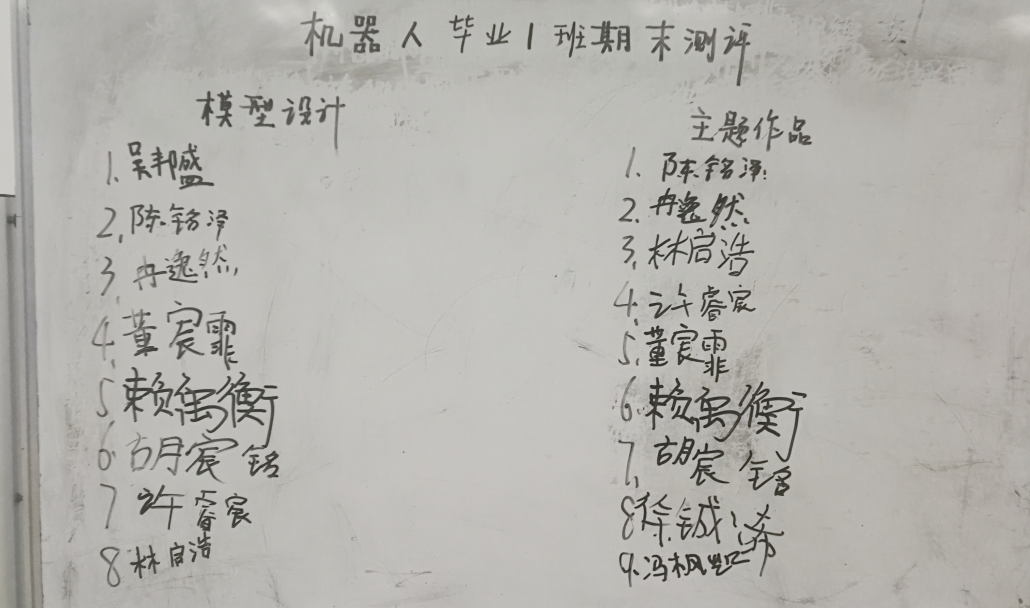 机器人毕业1班期末测评
模型设计
1.吴邦盛
2.陈铭泽
3.冉逸然
4.董宸霏
5.赖禹衡
6.胡宸铭
7许睿宸
8林启浩
主题作品
1.陈铭泽
2.冉逸然
3.林启浩
4.许睿宸
5.董宸霏
6.赖禹衡
7.胡宸铭
8徐铖浠
9.冯枫